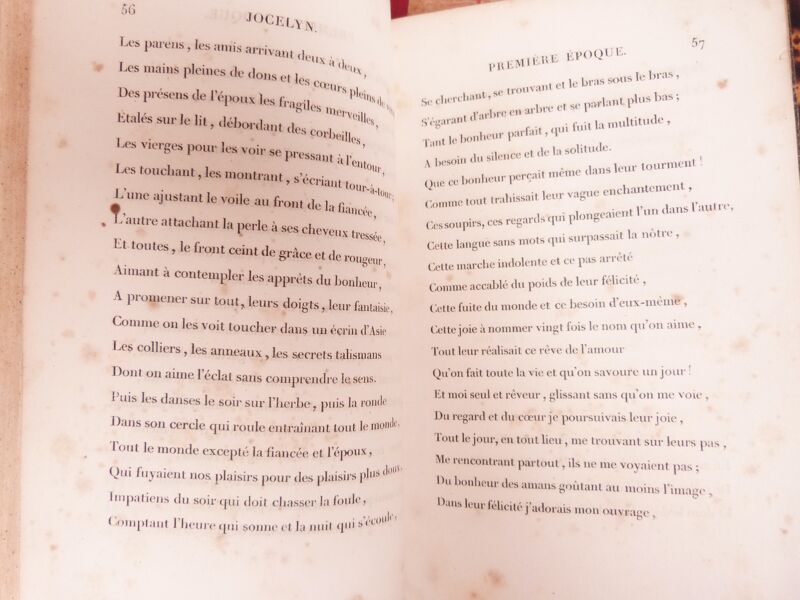 56
JOCELYN.
Les parens, les amis arrivant deux à deux,
Les mains pleines de dons et les cœurs pleins de
Des présens de l'époux les fragiles merveilles,
Étalés sur le lit, débordant des corbeilles,
Les vierges pour les voir se pressant à l'entour,
Les touchant, les montrant, s'écriant tour-à-tour;
L'une ajustant le voile au front de la fiancée,
L'autre attachant la perle à ses cheveux tressée,
Et toutes, le front ceint de grâce et de rougeur,
Aimant à contempler les apprêts du bonheur,
A promener sur tout, leurs doigts, leur fantaisie,
Comme on les voit toucher dans un écrin d'Asie
Les colliers, les anneaux, les secrets talismans
Dont on aime l'éclat sans comprendre le sens.
Puis les danses le soir sur l'herbe, puis la ronde
Dans son cercle qui roule entraînant tout le monde,
Tout le monde excepté la fiancée et l'époux,
Qui fuyaient nos plaisirs pour des plaisirs plus doux,
Impatiens du soir qui doit chasser la foule,
Comptant l'heure qui sonne et la nuit qui s'écoule,
PREMIÈRE ÉPOQUE.
57
Se cherchant, se trouvant et le bras sous le bras,
S'égarant d'arbre en arbre et se parlant plus bas;
Tant le bonheur parfait, qui fuit la multitude,
A besoin du silence et de la solitude.
Que ce bonheur perçait même dans leur tourment!
Comme tout trahissait leur vague enchantement,
Ces soupirs, ces regards qui plongeaient l'un dans l'autre,
Cette langue sans mots qui surpassait la nôtre,
Cette marche indolente et ce pas arrêté
Comme accablé du poids de leur félicité,
Cette fuite du monde et ce besoin d'eux-même,
Cette joie à nommer vingt fois le nom qu'on aime,
Tout leur réalisait ce rêve de l'amour
Qu'on fait toute la vie et qu'on savoure un jour!
Et moi seul et rêveur, glissant sans qu'on me voie,
Du regard et du cœur je poursuivais leur joie,
Tout le jour, en tout lieu, me trouvant sur leurs pas,
Me rencontrant partout, ils ne me voyaient pas;
Du bonheur des amans goûtant au moins l'image,
Dans leur félicité j'adorais mon ouvrage,